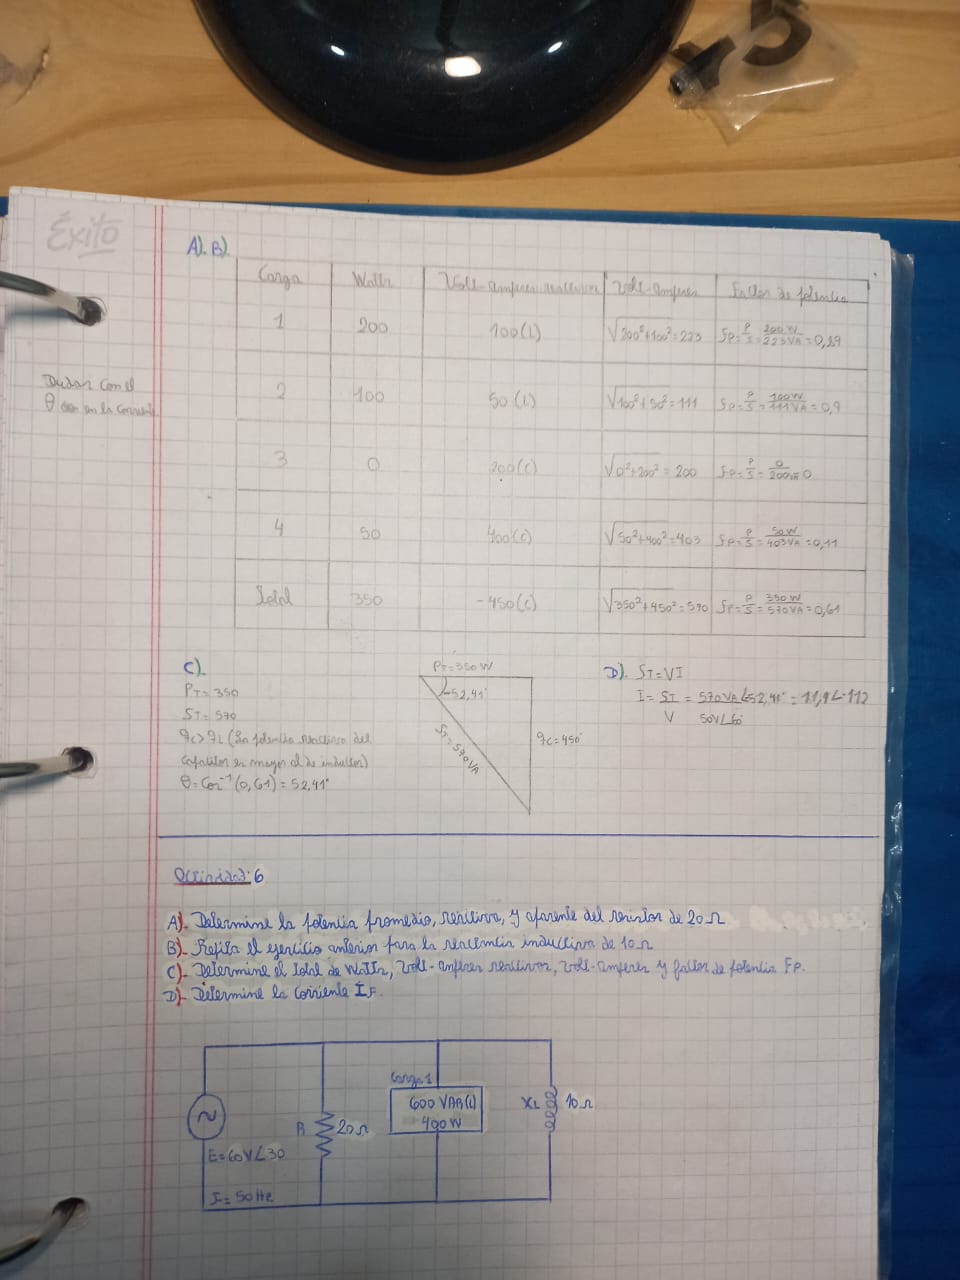 Éxito
A). B).
Carga Watts Volt-amperes reactivos Volt-amperes Factor de potencia
1 200 100(L) √200²+100²=223 Fp=P/S=200W/223VA=0,89
2 100 50(L) √100²+50²=111 Fp=P/S=100W/111VA=0,9
3 0 200(C) √0²+200²=200 Fp=P/S=0/200VA=0
4 50 400(C) √50²+400²=403 Fp=P/S=50W/403VA=0,11
Total 350 -450(C) √350²+450²=570 Fp=P/S=350W/570VA=0,61
Dudas con el
θ en la corriente
C).
PT=350
ST=570
qc>qL (La potencia reactiva del
capacitor es mayor al de inductor)
θ=Cos⁻¹(0,61)=52,41°
PT=350W
∠-52,41°
ST=570VA
qc=450
D). ST=VI
I=ST/V=570VA∠-52,41°/50V∠60=11,4∠-112
Actividad:6
A). Determine la potencia promedio, reactiva, y aparente del resistor de 20Ω
B). Repita el ejercicio anterior para la reactancia inductiva de 10Ω
C). Determine el total de Watts, Volt-amperes reactivos, Volt-amperes y factor de potencia Fp.
D). Determine la corriente IF.
Carga 1
600 VAR(L)
400W
R
20Ω
XL
10Ω
E=60V∠30
F=50Hz